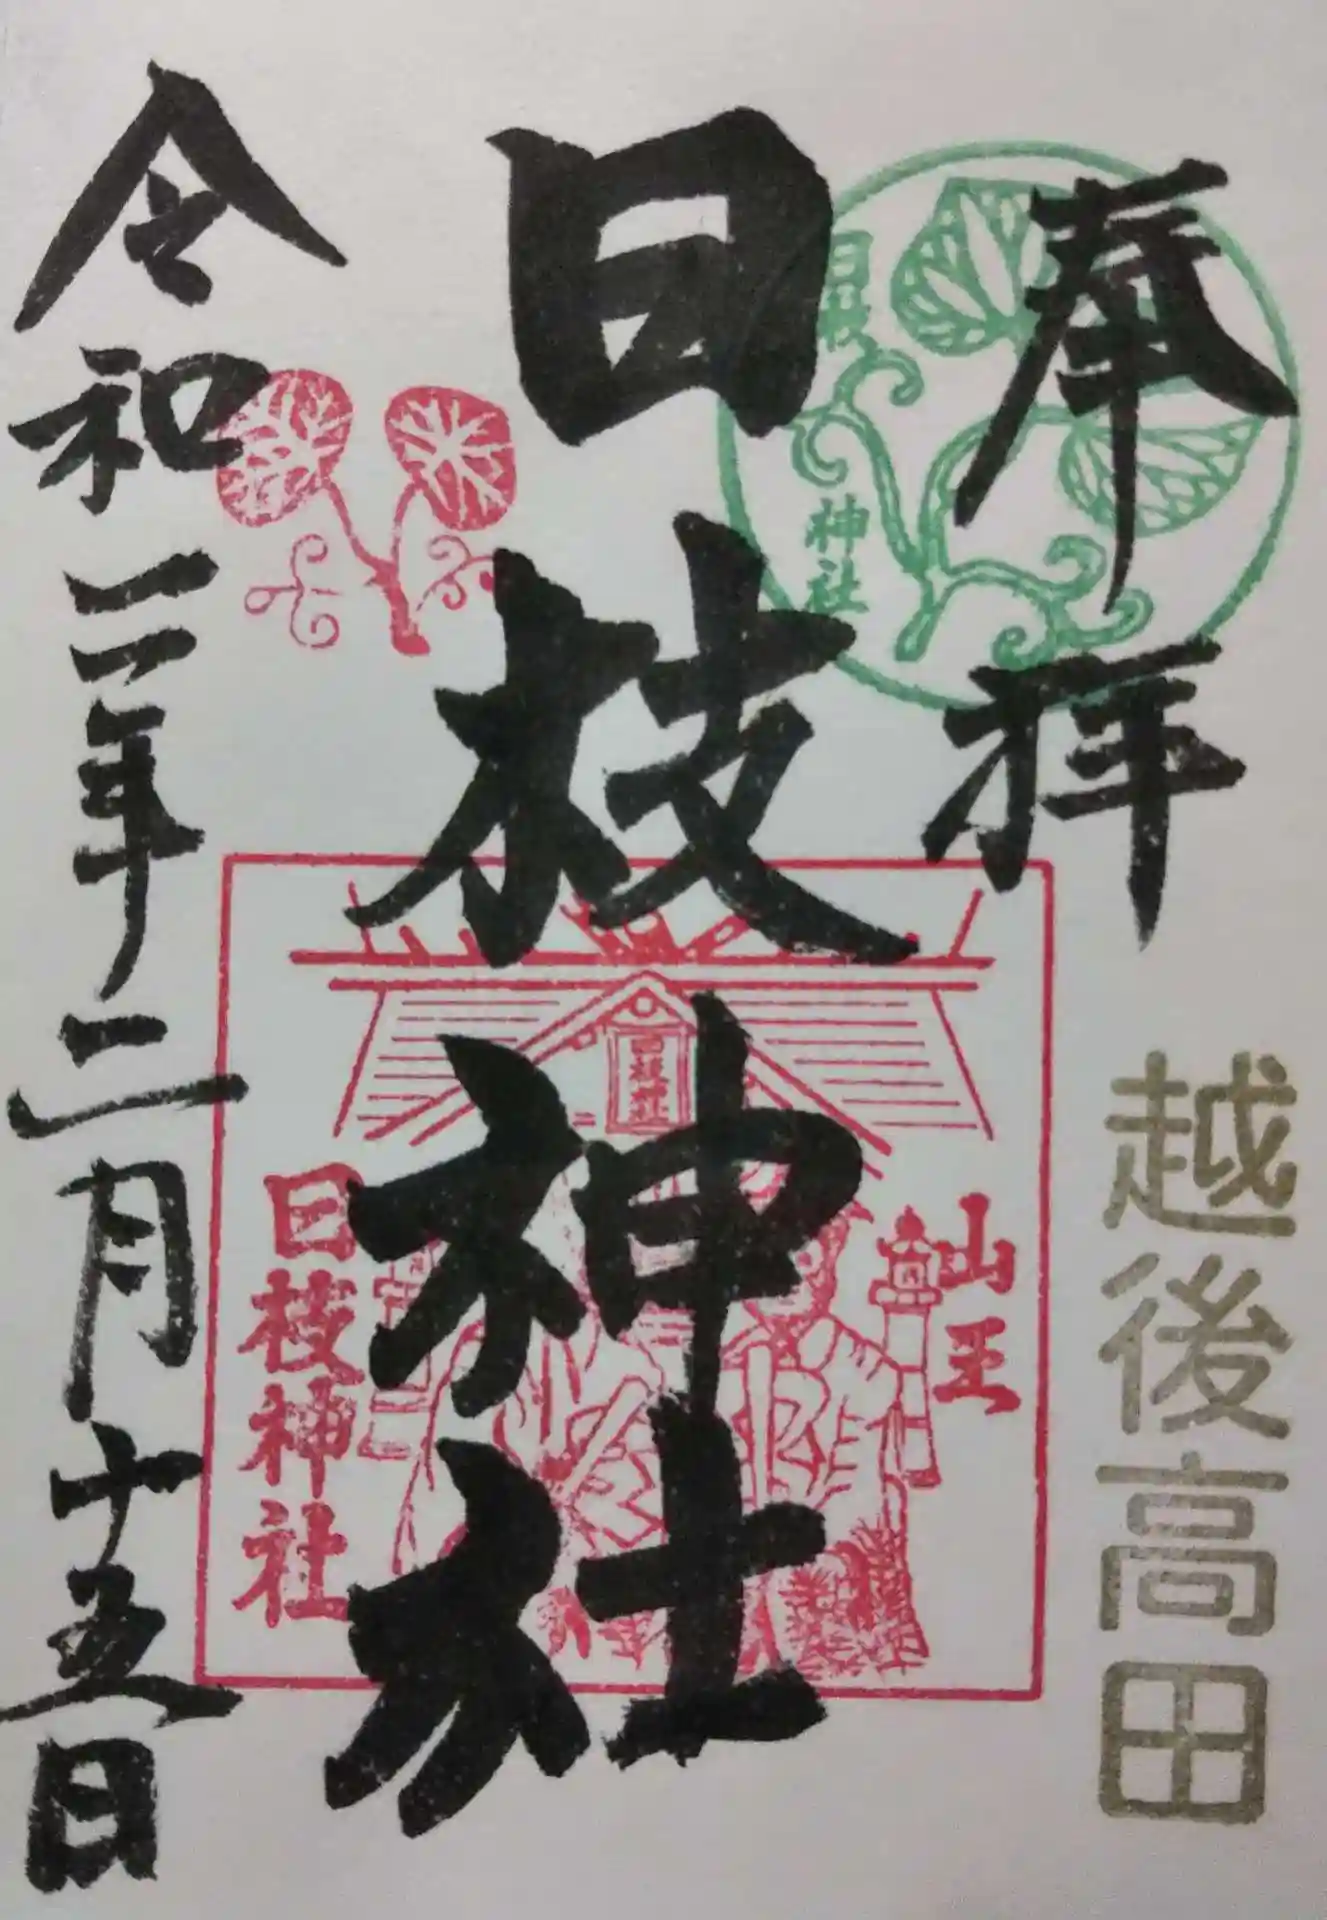 奉拝
日枝
神社
越後高田
日枝神社
山王
日枝神社
日枝神社
令和二年二月十五日